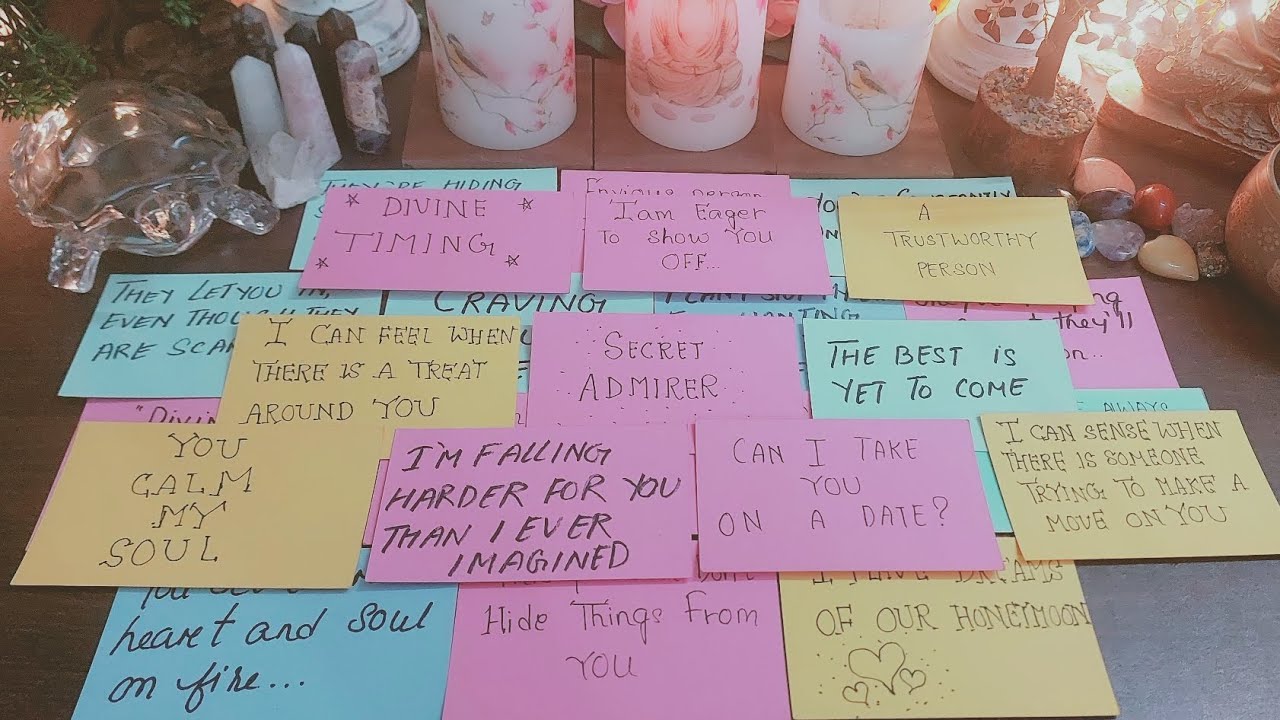 THEY'RE HIDING
DIVINE
TIMING
I am Eager
To Show You
OFF...
CONSTANTLY
A
TRUSTWORTHY
PERSON
THEY LET YOU IN,
EVEN THOUGH THEY
ARE
CRAVING
I CAN FEEL WHEN
THERE IS A TREAT
AROUND YOU
SECRET
ADMIRER
THE BEST IS
YET TO COME
they'll
ALWAYS
YOU
CALM
MY
SOUL
I'M FALLING
HARDER FOR YOU
THAN I EVER
IMAGINED
CAN I TAKE
YOU
ON A DATE?
I CAN SENSE WHEN
THERE IS SOMEONE
TRYING TO MAKE A
MOVE ON YOU
You
heart and soul
on fire...
Hide Things From
YOU
I HAVE DREAMS
OF OUR HONEYMOON